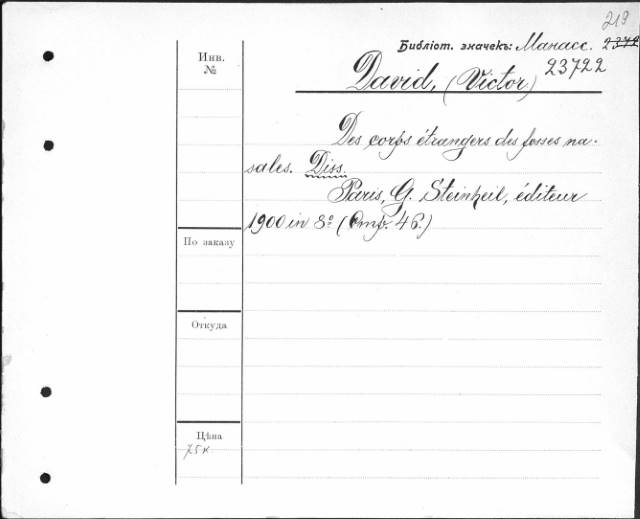 219
Библіот. значекъ: Манасс. 2372
23722
David, (Victor)
Инв.
№
Des corps étrangers des fosses na-
sales. Diss.
Paris, G. Steinheil, éditeur
1900 in 8º (Стр. 46.)
По заказу
Откуда
Цѣна
75к